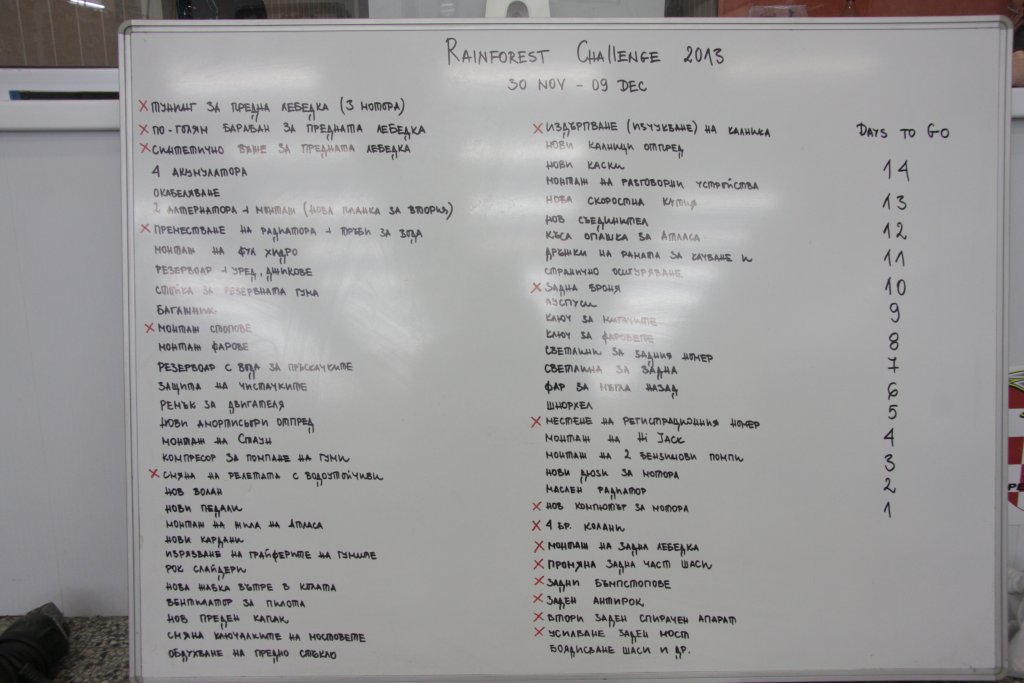 RAINFOREST CHALLENGE 2013
30 NOV - 09 DEC
× ТУНИНГ ЗА ПРЕДНА ЛЕБЕДКА (3 МОТОРА)
× ПО-ГОЛЯМ БАРАБАН ЗА ПРЕДНАТА ЛЕБЕДКА
× СИНТЕТИЧНО ВЪЖЕ ЗА ПРЕДНАТА ЛЕБЕДКА
4 АКУМУЛАТОРА
ОКАБЕЛЯВАНЕ
2 АЛТЕРНАТОРА + МОНТАЖ (НОВА ПЛАНКА ЗА ВТОРИЯ)
× ПРЕМЕСТВАНЕ НА РАДИАТОРА + ТРЪБИ ЗА ВОДА
МОНТАЖ НА ФУЛ ХИДРО
РЕЗЕРВОАР + УРЕД, ДЖИКОВЕ
СТОЙКА ЗА РЕЗЕРВНАТА ГУМА
БАГАЖНИК
× МОНТАЖ СТОПОВЕ
МОНТАЖ ФАРОВЕ
РЕЗЕРВОАР С ВОДА ЗА ПРЪСКАЧКИТЕ
ЗАЩИТА НА ЧИСТАЧКИТЕ
РЕМЪК ЗА ДВИГАТЕЛЯ
НОВИ АМОРТИСЬОРИ ОТПРЕД
МОНТАЖ НА СТАУН
КОМПРЕСОР ЗА ПОМПАНЕ НА ГУМИ
× СМЯНА НА РЕЛЕТАТА С ВОДОУСТОЙЧИВИ
НОВ ВОЛАН
НОВИ ПЕДАЛИ
МОНТАЖ НА ЖИЛА НА АТЛАСА
НОВИ КАРДАНИ
ИЗРЯЗВАНЕ НА ГРАЙФЕРИТЕ НА ГУМИТЕ
РОК СЛАЙДЕРИ
НОВА ЖАБКА ВЪТРЕ В КОЛАТА
ВЕНТИЛАТОР ЗА ПИЛОТА
НОВ ПРЕДЕН КАПАК
СМЯНА КЛЮЧАЛКИТЕ НА МОСТОВЕТЕ
ОБДУХВАНЕ НА ПРЕДНО СТЪКЛО
× ИЗДЪРПВАНЕ (ИЗЧУКВАНЕ) НА КАЛНИКА
НОВИ КАЛНИЦИ ОТПРЕД
НОВИ КАСКИ
МОНТАЖ НА РАЗГОВОРНИ УСТРОЙСТВА
НОВА СКОРОСТНА КУТИЯ
НОВ СЪЕДИНИТЕЛ
КЪСА ОПАШКА ЗА АТЛАСА
ДРЪЖКИ НА РАМАТА ЗА КАЧВАНЕ И
СТРАНИЧНО ОСИГУРЯВАНЕ
× ЗАДНА БРОНЯ
АУСПУСИ
КЛЮЧ ЗА МИГАЧИТЕ
КЛЮЧ ЗА ФАРОВЕТЕ
СВЕТЛИНИ ЗА ЗАДНИЯ НОМЕР
СВЕТЛИНА ЗА ЗАДНА
ФАР ЗА МЪГЛА НАЗАД
ШНОРХЕЛ
× МЕСТЕНЕ НА РЕГИСТРАЦИОННИЯ НОМЕР
МОНТАЖ НА Hi JACK
МОНТАЖ НА 2 БЕНЗИНОВИ ПОМПИ
НОВИ ДЮЗИ ЗА МОТОРА
МАСЛЕН РАДИАТОР
× НОВ КОМПЮТЪР ЗА МОТОРА
× 4 БР. КОЛАНИ
× МОНТАЖ НА ЗАДНА ЛЕБЕДКА
× ПРОМЯНА ЗАДНА ЧАСТ ШАСИ
× ЗАДНИ БЪМПСТОПОВЕ
× ЗАДЕН АНТИРОК
× ВТОРИ ЗАДЕН СПИРАЧЕН АПАРАТ
× УСИЛВАНЕ ЗАДЕН МОСТ
БОЯДИСВАНЕ ШАСИ И ДР.
DAYS TO GO
14
13
12
11
10
9
8
7
6
5
4
3
2
1